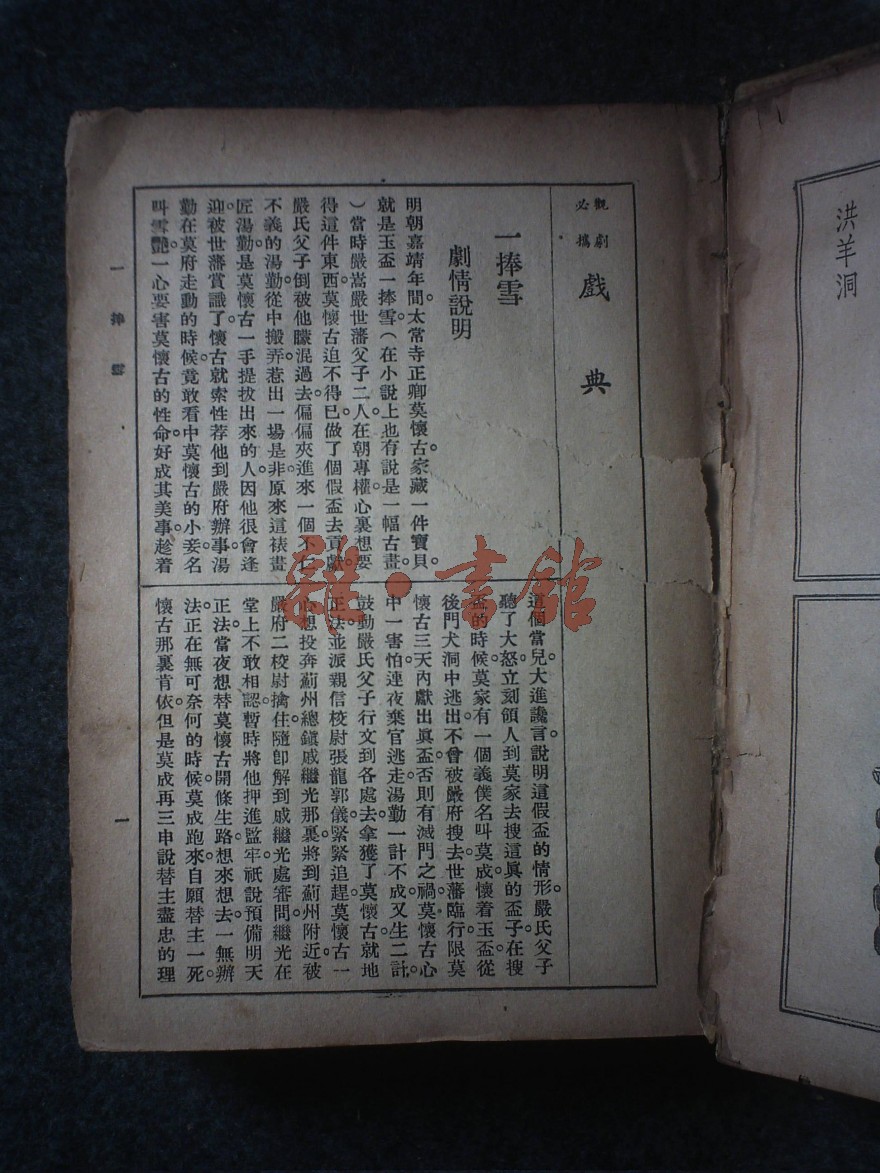 洪羊洞
觀劇必攜
戲典
一捧雪
劇情說明
明朝嘉靖年間。太常寺正卿莫懷古。家藏一件寶貝。
就是玉盃一捧雪（在小說上也有說是一幅古畫。
）當時嚴嵩嚴世藩父子二人。在朝專權。心裏想要
得這件東西。莫懷古迫不得已。做了個假盃去貢獻。
嚴氏父子倒被他矇混過去。偏偏夾進來一個不仁
不義的湯勤。從中搬弄。惹出一場是非。原來這裱畫
匠湯勤。是莫懷古一手提拔出來的人。因他很會逢
迎。被世藩賞識了。懷古就索性荐他到嚴府辦事。湯
勤在莫府走動的時候。竟敢看中莫懷古的小妾。名
叫雪艷。一心要害莫懷古的性命。好成其美事。趁着
這個當兒。大進讒言。說明這假盃的情形。嚴氏父子
聽了大怒。立刻領人到莫家去搜這真的盃子。在搜
盃的時候。莫家有一個義僕。名叫莫成。懷着玉盃。從
後門犬洞中逃出。不曾被嚴府搜去。世藩臨行。限莫
懷古三天內獻出眞盃。否則有滅門之禍。莫懷古心
中一害怕。連夜棄官逃走。湯勤一計不成。又生二計。
鼓動嚴氏父子行文到各處去。拿獲了莫懷古。就地
正法。並派親信校尉張龍郭儀。緊緊追趕。莫懷古一
心想投奔薊州總鎮戚繼光那裏。將到薊州附近。被
嚴府二校尉擒住。隨卽解到戚繼光處審問。繼光在
堂上不敢相認。暫時將他押進監牢。祇說預備明天
正法。當夜想替莫懷古開條生路。想來想去。一無辦
法。正在無可奈何的時候。莫成跑來。自願替主一死。
懷古那裏肯依。但是莫成再三申說替主盡忠的理
一捧雪
一
雜·書館